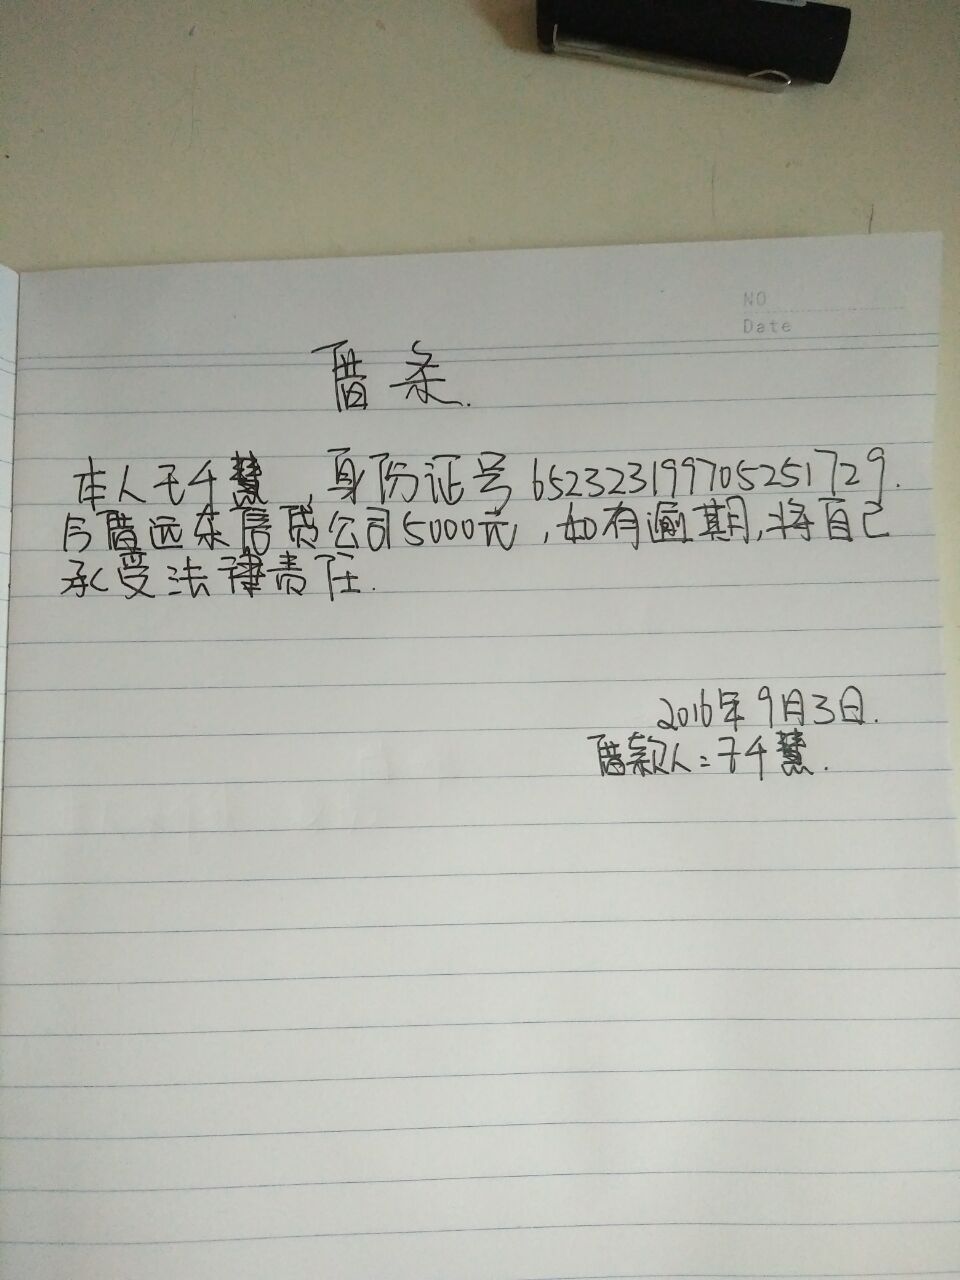 NO
Date
借条.
本人于千慧,身份证号652323199705251729.
今借远东信贷公司5000元,如有逾期,将自己
承受法律责任.
2016年9月3日.
借款人:于千慧.